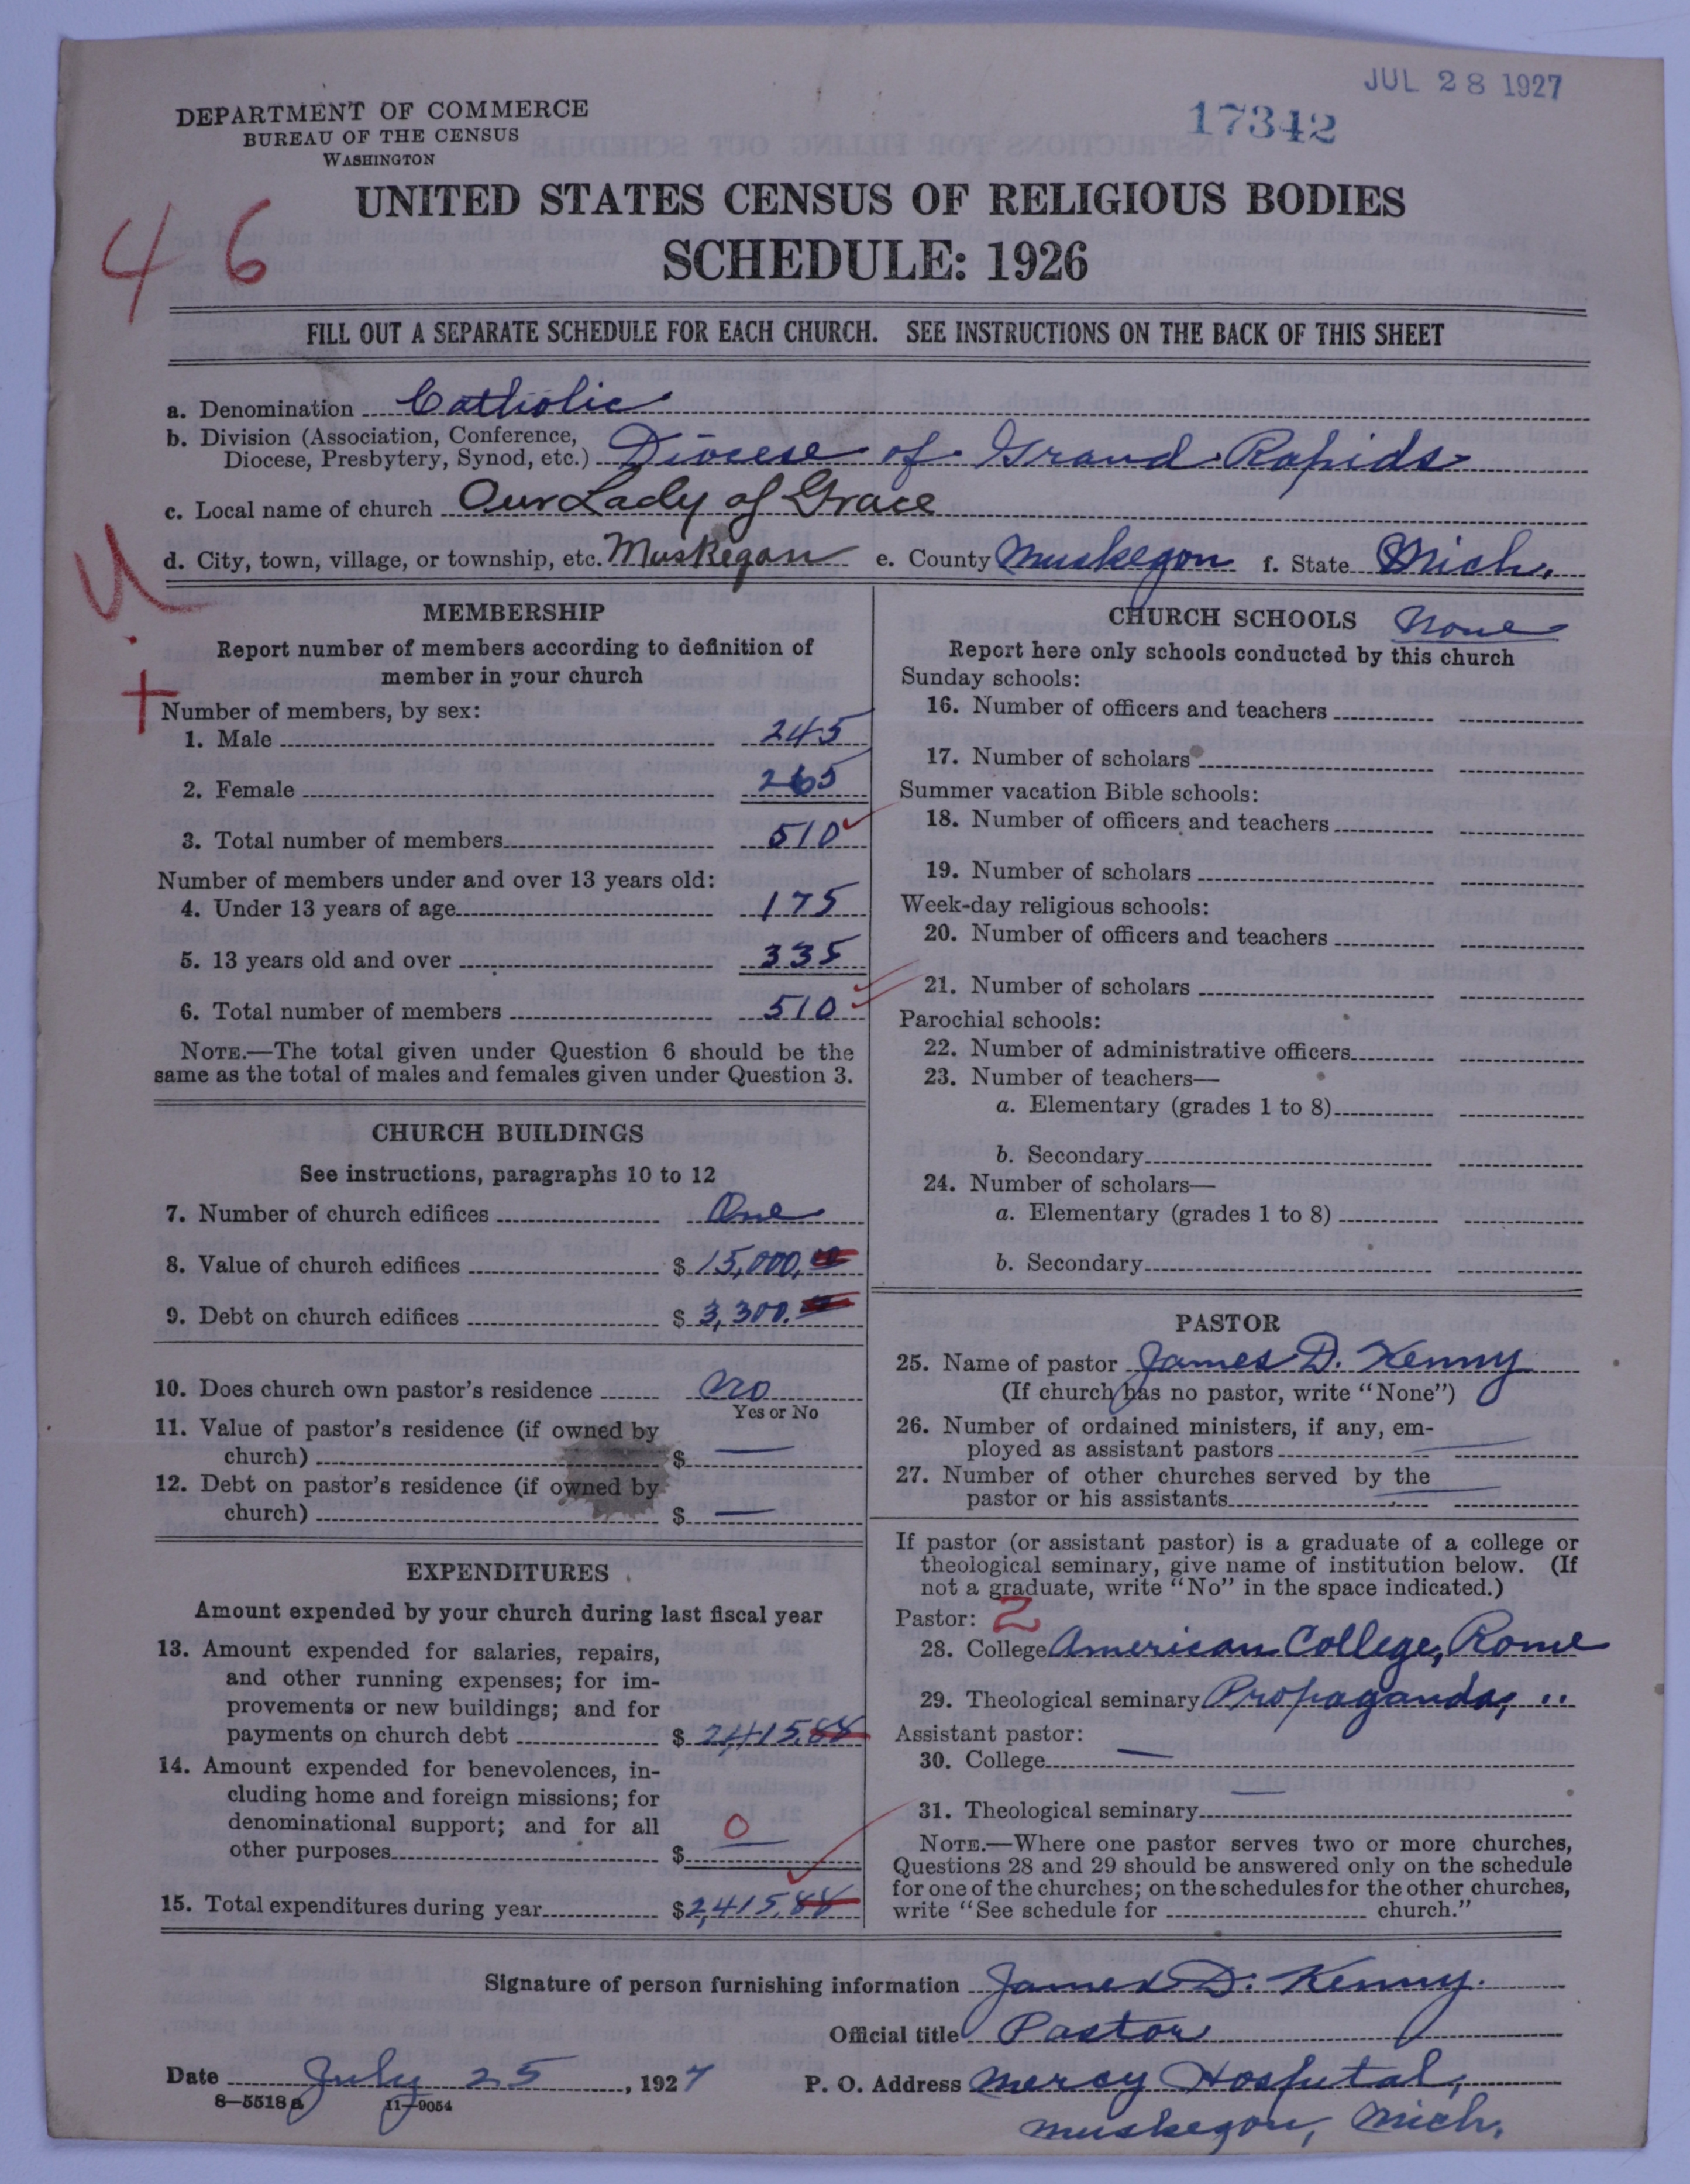 JUL 28 1927
17342
DEPARTMENT OF COMMERCE
BUREAU OF THE CENSUS
WASHINGTON
UNITED STATES CENSUS OF RELIGIOUS BODIES
SCHEDULE: 1926
46
FILL OUT A SEPARATE SCHEDULE FOR EACH CHURCH. SEE INSTRUCTIONS ON THE BACK OF THIS SHEET
a. Denomination Catholic
b. Division (Association, Conference,
Diocese, Presbytery, Synod, etc.) Diocese of Grand Rapids
c. Local name of church Our Lady of Grace
d. City, town, village, or township, etc. Muskegon e. County Muskegon f. State Mich.
U
MEMBERSHIP
Report number of members according to definition of
member in your church
Number of members, by sex:
1. Male 245
2. Female 265
3. Total number of members 510
Number of members under and over 13 years old:
4. Under 13 years of age 175
5. 13 years old and over 335
6. Total number of members 510
NOTE.—The total given under Question 6 should be the
same as the total of males and females given under Question 3.
CHURCH BUILDINGS
See instructions, paragraphs 10 to 12
7. Number of church edifices One
8. Value of church edifices $ 15,000.00
9. Debt on church edifices $ 3,300.00
10. Does church own pastor's residence No
Yes or No
11. Value of pastor's residence (if owned by
church) $ —
12. Debt on pastor's residence (if owned by
church) $ —
EXPENDITURES
Amount expended by your church during last fiscal year
13. Amount expended for salaries, repairs,
and other running expenses; for im-
provements or new buildings; and for
payments on church debt $ 2,415.88
14. Amount expended for benevolences, in-
cluding home and foreign missions; for
denominational support; and for all
other purposes $ 0 —
15. Total expenditures during year $ 2,415.88
CHURCH SCHOOLS None
Report here only schools conducted by this church
Sunday schools:
16. Number of officers and teachers
17. Number of scholars
Summer vacation Bible schools:
18. Number of officers and teachers
19. Number of scholars
Week-day religious schools:
20. Number of officers and teachers
21. Number of scholars
Parochial schools:
22. Number of administrative officers
23. Number of teachers—
a. Elementary (grades 1 to 8)
b. Secondary
24. Number of scholars—
a. Elementary (grades 1 to 8)
b. Secondary
PASTOR
25. Name of pastor James D. Kenny
(If church has no pastor, write "None")
26. Number of ordained ministers, if any, em-
ployed as assistant pastors —
27. Number of other churches served by the
pastor or his assistants —
If pastor (or assistant pastor) is a graduate of a college or
theological seminary, give name of institution below. (If
not a graduate, write "No" in the space indicated.)
Pastor: 2
28. College American College, Rome
29. Theological seminary Propaganda, "
Assistant pastor:
30. College —
31. Theological seminary —
NOTE.—Where one pastor serves two or more churches,
Questions 28 and 29 should be answered only on the schedule
for one of the churches; on the schedules for the other churches,
write "See schedule for church."
Signature of person furnishing information James D. Kenny.
Official title Pastor
Date July 25, 1927 P. O. Address Mercy Hospital,
8—5518a 11—9054
Muskegon, Mich.